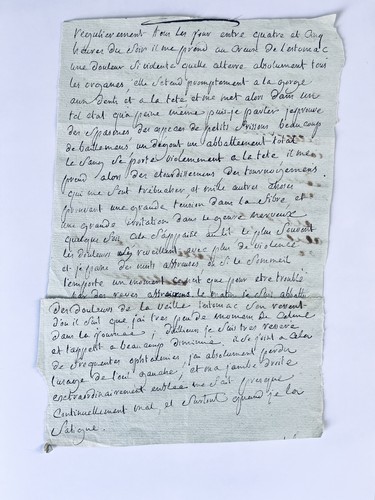 regulierement tous les jour entre quatre et cinq
heures du soir il me prend au creux de l'estomac
une douleur si violente quelle altere absolument tous
les organes elle setend promptement a la gorge
aux dents et a la tete et me met alors dans un
tel etat qua peine meme puis je parler jeprouve
des spasmes des especes de petit frissons beaucoup
de baillemens un degout un abbattement total
le sang se porte violemment a la tete il me
prend alors des etourdissemens des tournoyemens
qui me font trebucher et mille autres choses
prouvant une grande tension dans la fibre et
une grande irritation dans le genre nerveux
quelque fois cela sappaise au lit le plus souvent
les douleurs se reveillent avec plus de violence
et je passe des nuits affreuses et si le sommeil
l'emporte un moment ce nest que pour etre trouble
par des reves le matin je suis abbatu
des douleurs de la veille lestomac sen ressent
dou il suit que jai tres peu de momens de calme
dans la journee, d'ailleurs je suis tres resserré
et l'appetit a beaucoup diminué il se joint a cela
de frequentes ophtalmies, jai absolument perdu
l'usage de l'œil gauche, et ma jambe droite
extraordinairement enflee me fait presque
continuellement mal et surtout quand je la
fatigue.